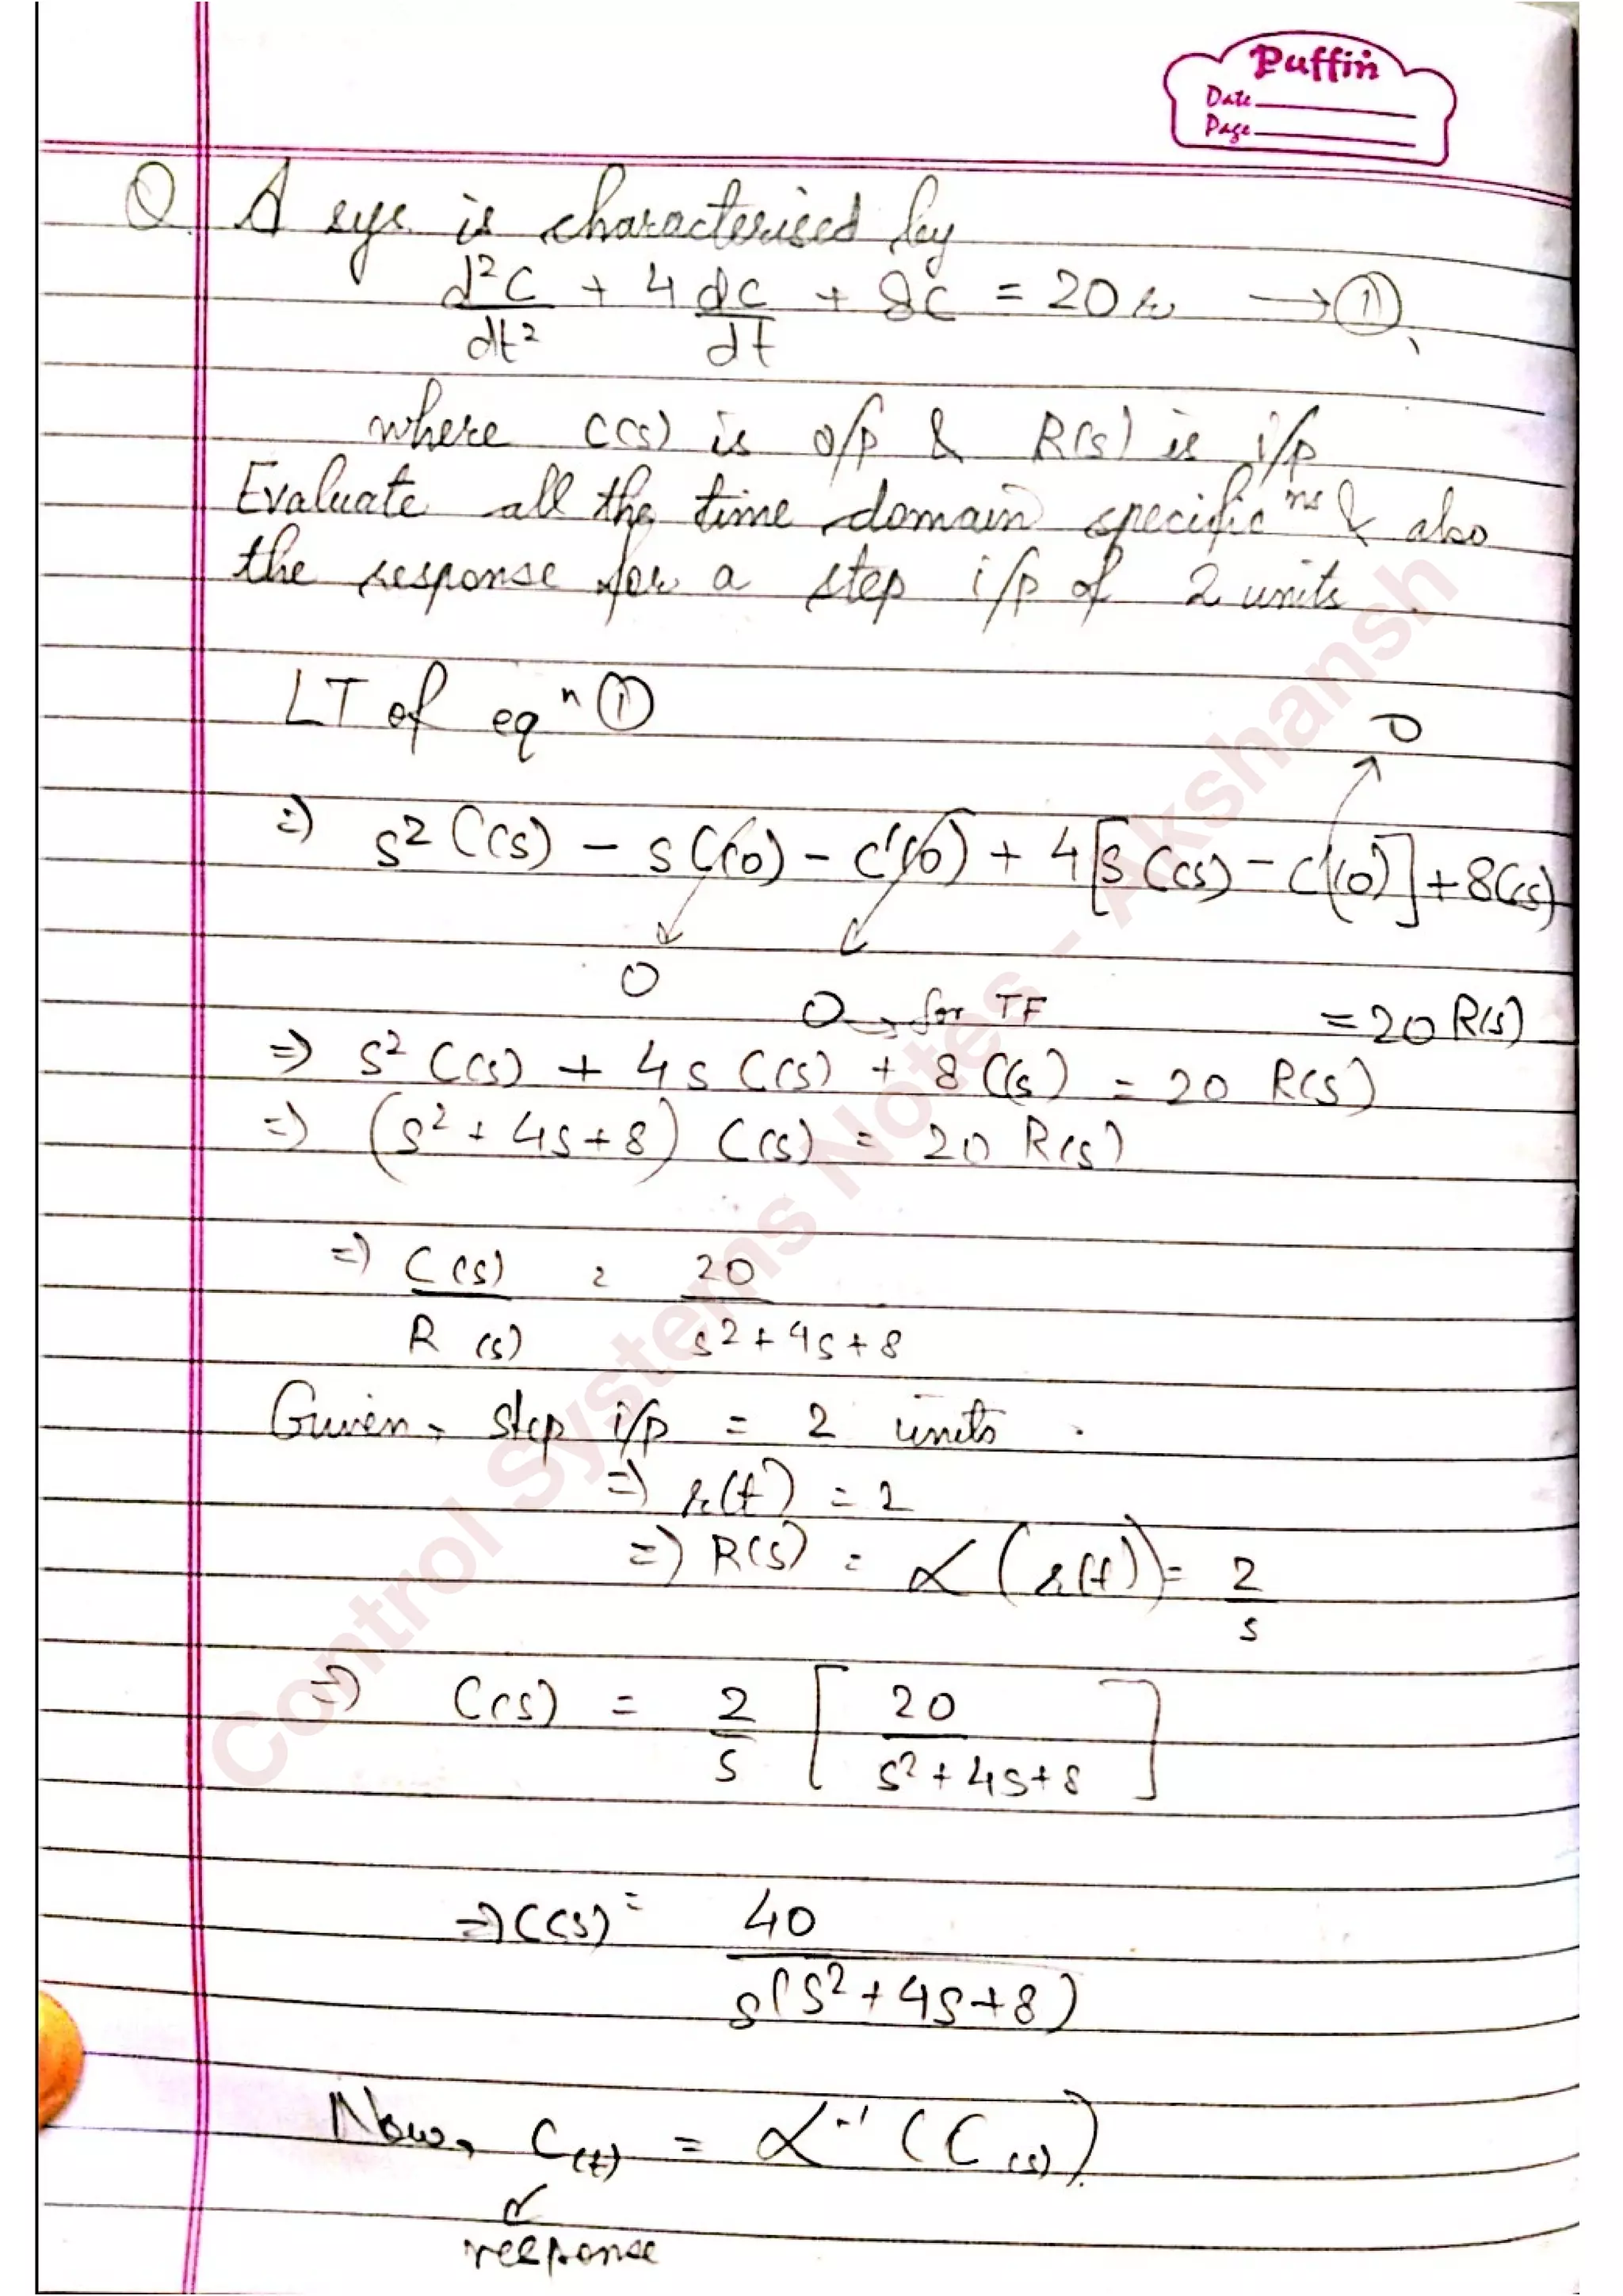 Puffin
Date
Page
Q A sys is characterised by
d²C/dt² + 4 dc/dt + 8C = 20r → ①
where C(s) is o/p & R(s) is i/p
Evaluate all the time domain specific^ns & also
the response for a step i/p of 2 units
LT of eqⁿ ①
0
⇒ s² C(s) - s C(0) - c'(0) + 4[s C(s) - C(0)] + 8C(s)
0
0 → for TF = 20 R(s)
⇒ s² C(s) + 4s C(s) + 8 C(s) = 20 R(s)
⇒ (s² + 4s + 8) C(s) = 20 R(s)
⇒ C(s)/R(s) = 20/s² + 4s + 8
Given, step i/p = 2 units.
⇒ r(t) = 2
⇒ R(s) = L(r(t)) = 2/s
⇒ C(s) = 2/s [20/s² + 4s + 8]
⇒ C(s) = 40/s(s² + 4s + 8)
Now, C(t) = L⁻¹(C(s))
response
Control Systems Notes - Akshansh